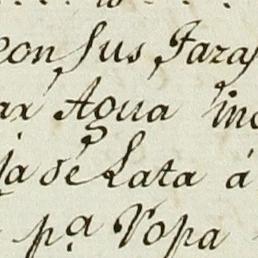 con sus Jaras
ar Agua in
ja de Lata á
pa Ropa